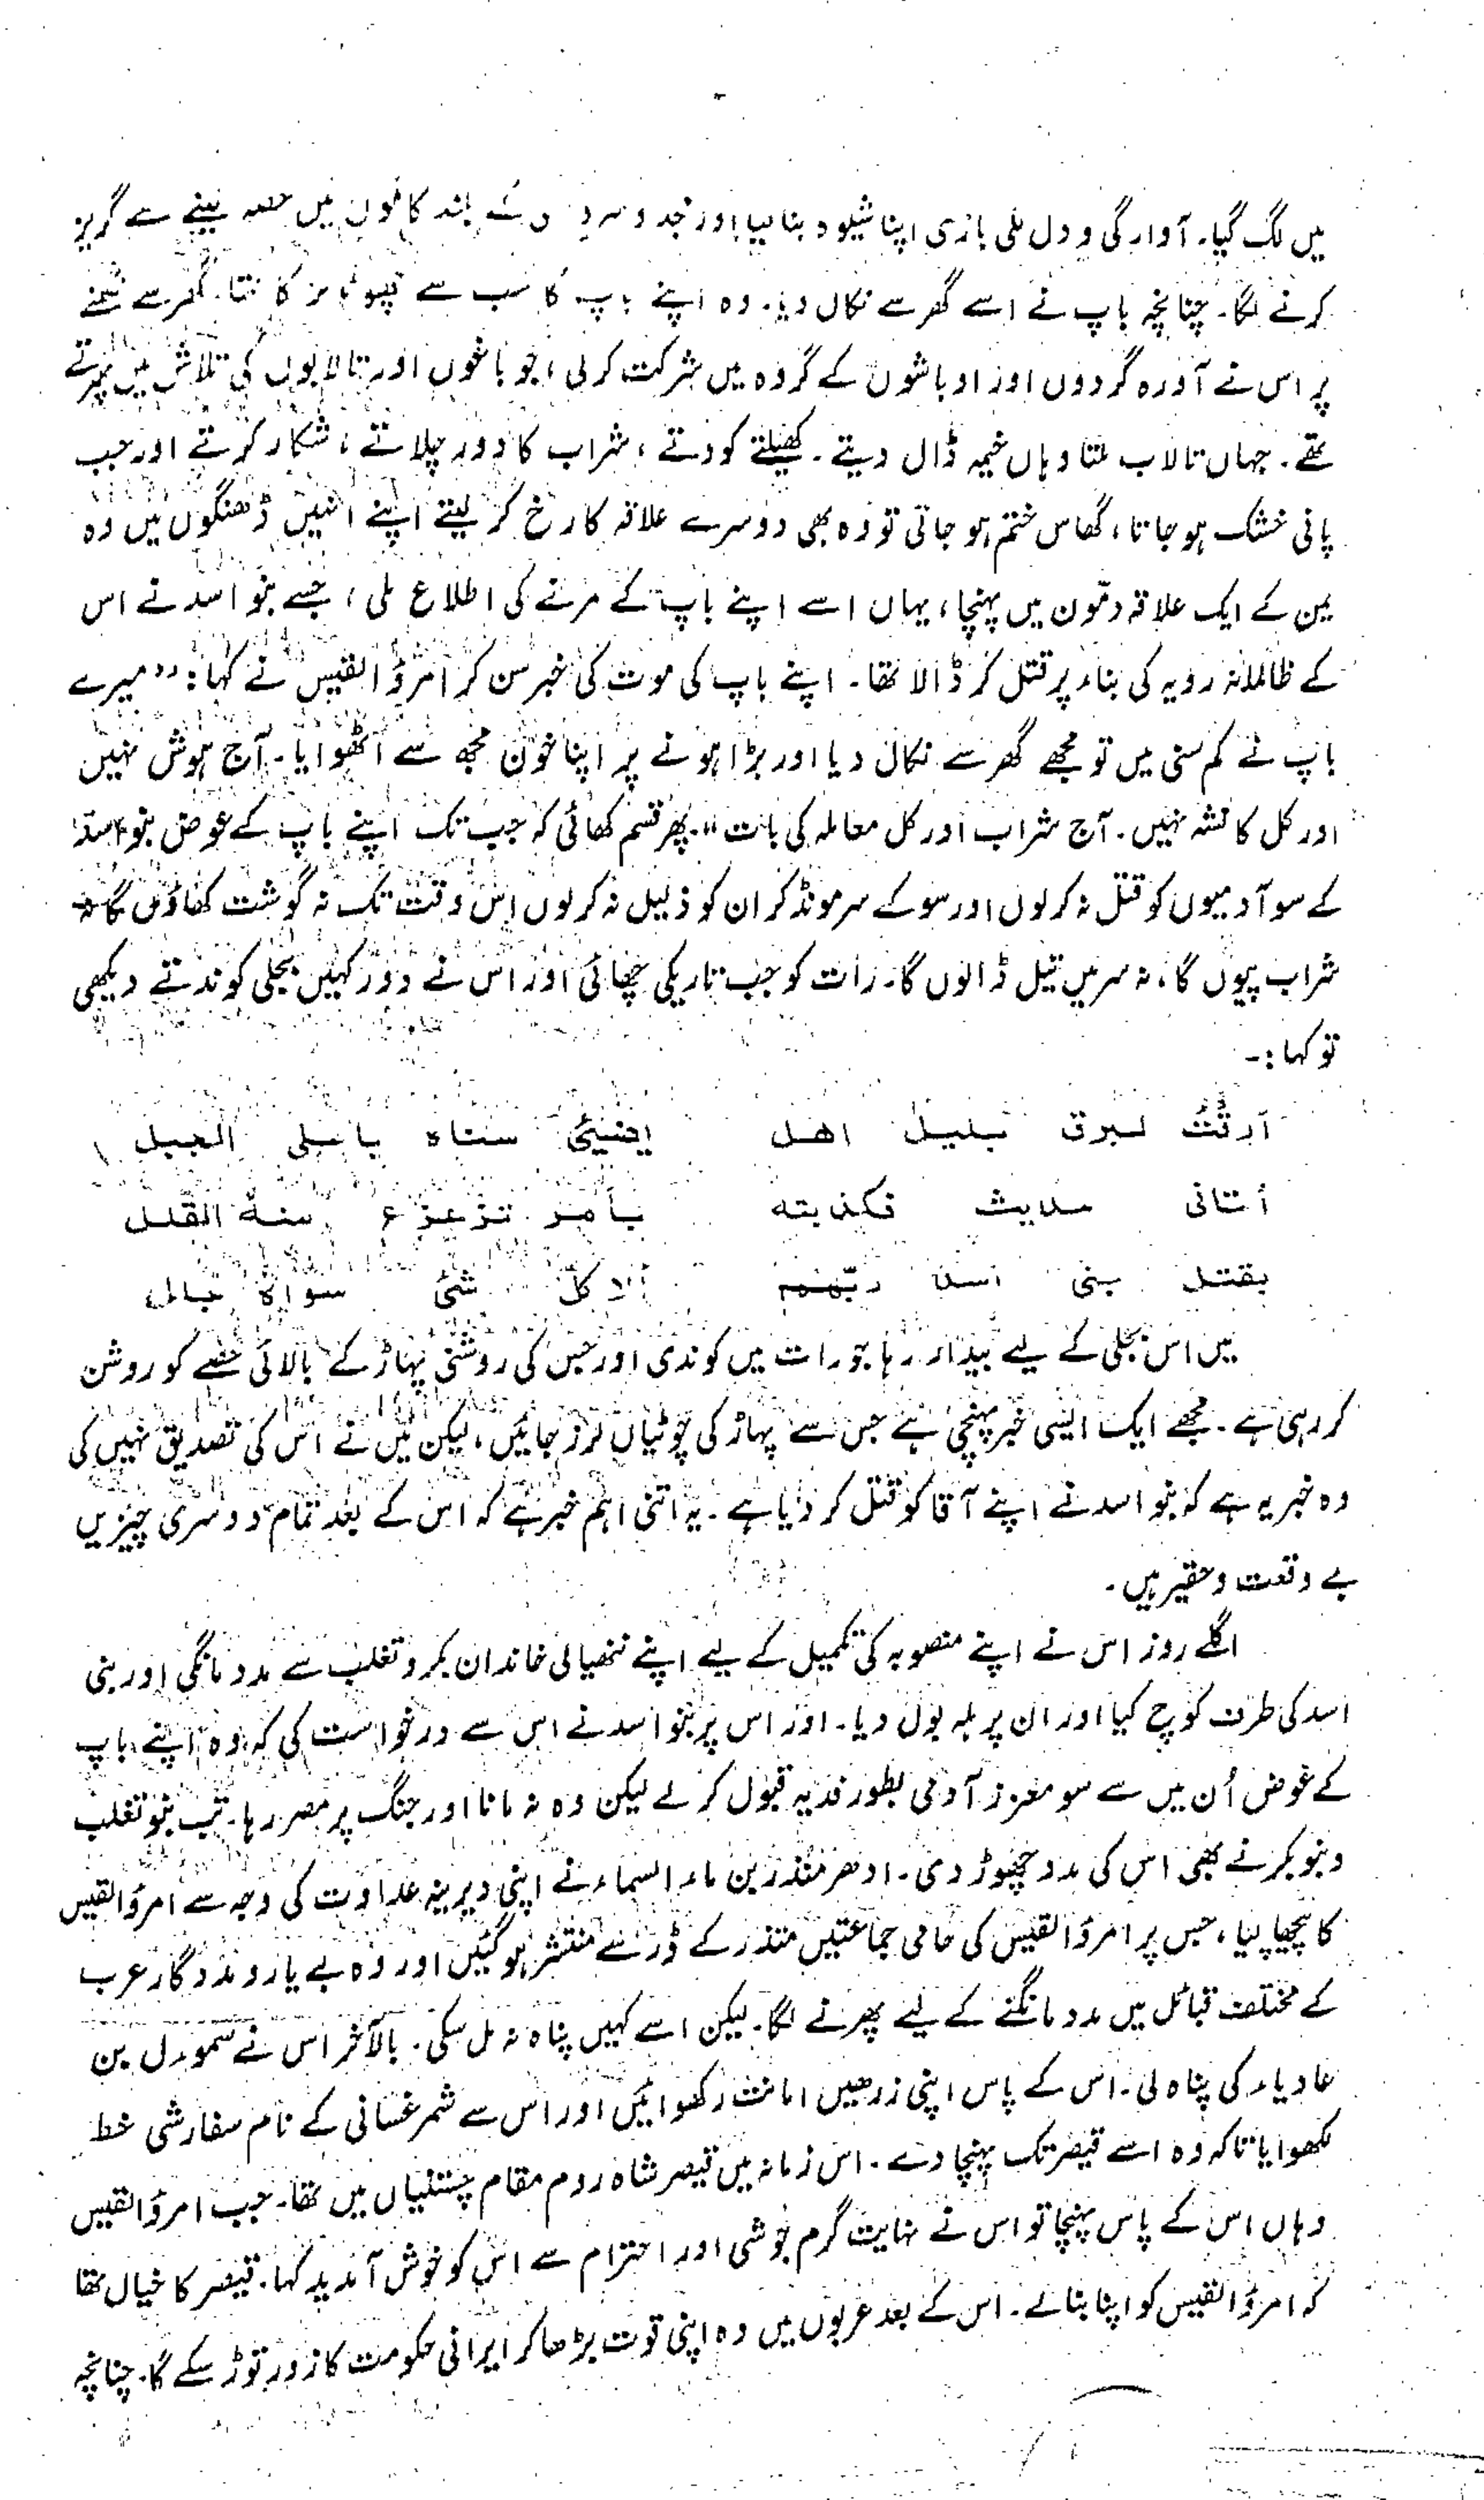 میں لگ گیا۔ آوارگی و دل لگی بازی اپنا شیوہ بنا لیا اور جد و سرد کے بلند کاموں میں حصہ لینے سے گریز
کرنے لگا۔ چنانچہ باپ نے اسے گھر سے نکال دیا۔ وہ اپنے باپ کا سب سے چھوٹا لڑکا تھا۔ گھر سے نکلنے
پر اس نے آورہ گردوں اور اوباشوں کے گروہ میں شرکت کر لی، جو باغوں اور تالابوں کی تلاش میں پھرتے
تھے۔ جہاں تالاب ملتا وہاں خیمہ ڈال دیتے۔ کھیلتے کودتے، شراب کا دور چلاتے، شکار کرتے اور جب
پانی خشک ہو جاتا، گھاس ختم ہو جاتی تو وہ بھی دوسرے علاقہ کا رخ کر لیتے اپنے انہیں ڈھنگوں میں وہ
یمن کے ایک علاقہ دمّون میں پہنچا، یہاں اسے اپنے باپ کے مرنے کی اطلاع ملی، جسے بنو اسد نے اس
کے ظالمانہ رویہ کی بناء پر قتل کر ڈالا تھا۔ اپنے باپ کی موت کی خبر سن کر امرؤ القیس نے کہا: ”میرے
باپ نے کم سنی میں تو مجھے گھر سے نکال دیا اور بڑا ہونے پر اپنا خون مجھ سے اٹھوایا۔ آج ہوش نہیں
اور کل کا نشہ نہیں۔ آج شراب اور کل معاملہ کی بات“۔ پھر قسم کھائی کہ جب تک اپنے باپ کے عوض بنو اسد
کے سو آدمیوں کو قتل نہ کرلوں اور سو کے سر مونڈ کر ان کو ذلیل نہ کرلوں اس وقت تک نہ گوشت کھاؤں گا نہ
شراب پیوں گا، نہ سر میں تیل ڈالوں گا۔ رات کو جب تاریکی چھائی اور اس نے دور کہیں بجلی کوندتے دیکھی
تو کہا:۔
أرقتُ لبرق بليل اهل يضيئ سناه باعلى الجبل
أتانى حديث فكذبته بأمر تزعزع منه القلل
بقتل بنى اسد ربّهم ألا كلّ شئ سواه جلل
میں اس بجلی کے لیے بیدار رہا جو رات میں کوندی اور جس کی روشنی پہاڑ کے بالائی حصے کو روشن
کر رہی ہے۔ مجھے ایک ایسی خبر پہنچی ہے جس سے پہاڑ کی چوٹیاں لرز جائیں، لیکن میں نے اس کی تصدیق نہیں کی
وہ خبر یہ ہے کہ بنو اسد نے اپنے آقا کو قتل کر دیا ہے۔ یہ اتنی اہم خبر ہے کہ اس کے بعد تمام دوسری چیزیں
بے وقعت و حقیر ہیں۔
اگلے روز اس نے اپنے منصوبہ کی تکمیل کے لیے اپنے ننھیالی خاندان بکر و تغلب سے مدد مانگی اور بنی
اسد کی طرف کوچ کیا اور ان پر ہلہ بول دیا۔ اور اس پر بنو اسد نے اس سے درخواست کی کہ وہ اپنے باپ
کے عوض اُن میں سے سو معزز آدمی بطور فدیہ قبول کر لے لیکن وہ نہ مانا اور جنگ پر مصر رہا۔ تب بنو تغلب
و بنو بکر نے بھی اس کی مدد چھوڑ دی۔ ادھر منذر بن ماء السماء نے اپنی دیرینہ عداوت کی وجہ سے امرؤ القیس
کا پیچھا لیا، جس پر امرؤ القیس کی حامی جماعتیں منذر کے ڈر سے منتشر ہو گئیں اور وہ بے یار و مددگار عرب
کے مختلف قبائل میں مدد مانگنے کے لیے پھرنے لگا۔ لیکن اسے کہیں پناہ نہ مل سکی۔ بالآخر اس نے سموءل بن
عادیاء کی پناہ لی۔ اس کے پاس اپنی زرھیں امانت رکھوائیں اور اس سے شمر غسانی کے نام سفارشی خط
لکھوایا تاکہ وہ اسے قیصر تک پہنچا دے۔ اس زمانہ میں قیصر شاہ روم مقام چستنیاں میں تھا۔ جب امرؤ القیس
وہاں اس کے پاس پہنچا تو اس نے نہایت گرم جوشی اور احترام سے اس کو خوش آمدید کہا۔ قیصر کا خیال تھا
کہ امرؤ القیس کو اپنا بنالے۔ اس کے بعد عربوں میں وہ اپنی قوت بڑھا کر ایرانی حکومت کا زور توڑ سکے گا۔ چنانچہ